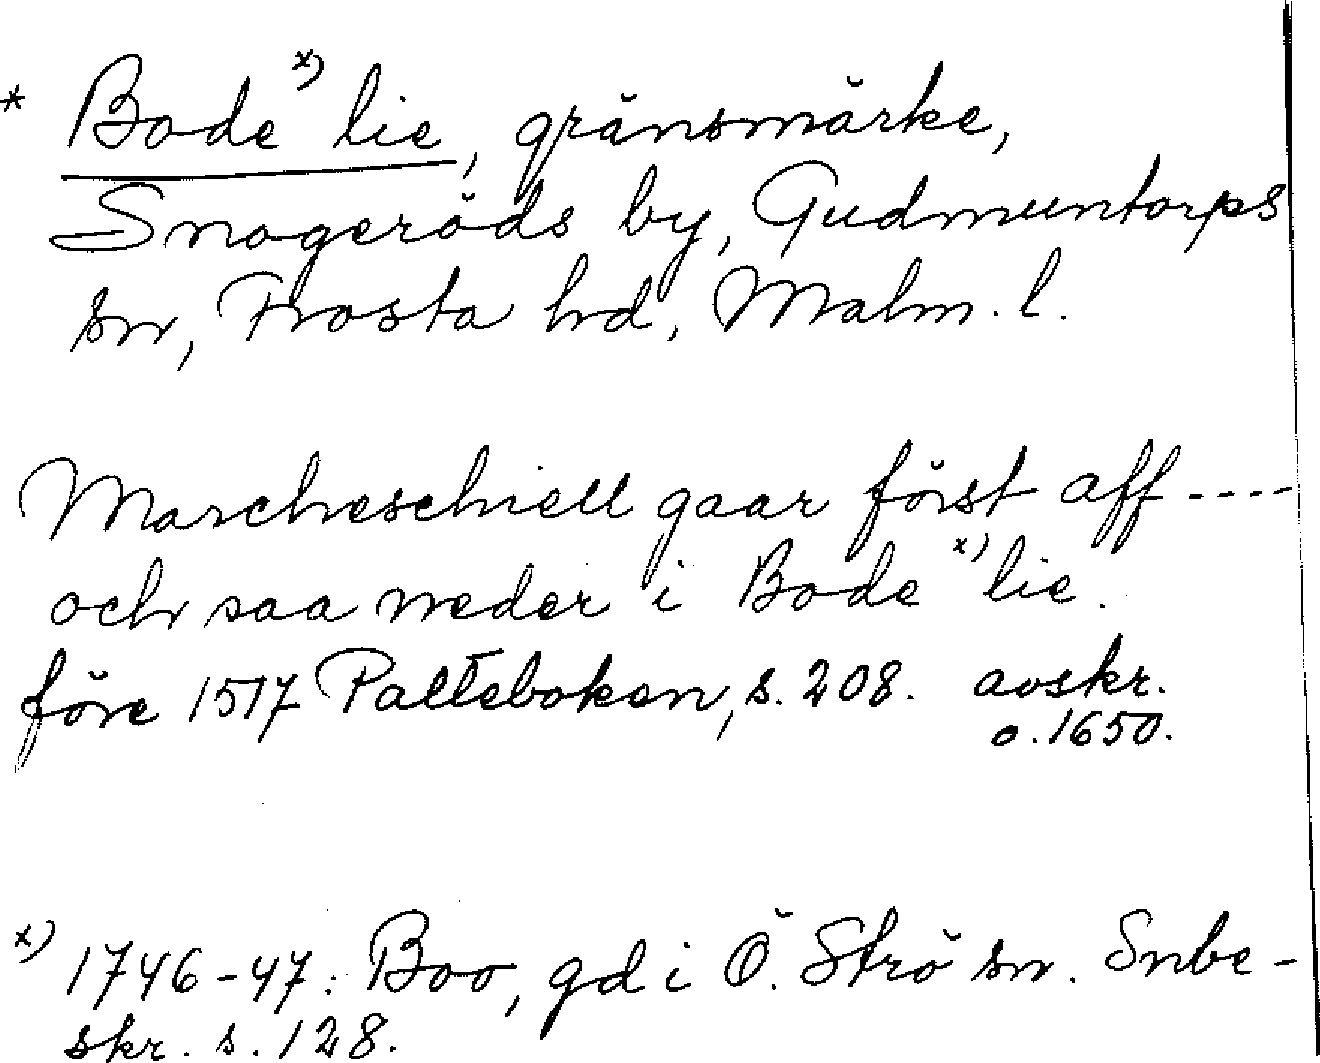 * Bode x) lie, gränsmärke,
Snogeröds by, Gudmuntorps
sn, Frosta hd, Malm. l.
Marcheschiell gaar först aff ----
och saa neder i Bode x) lie.
före 1517 Palteboken, s. 208. avskr.
o. 1650.
x) 1746-47: Boo, gd i Ö. Strö sn. Snbe-
skr. s. 128.